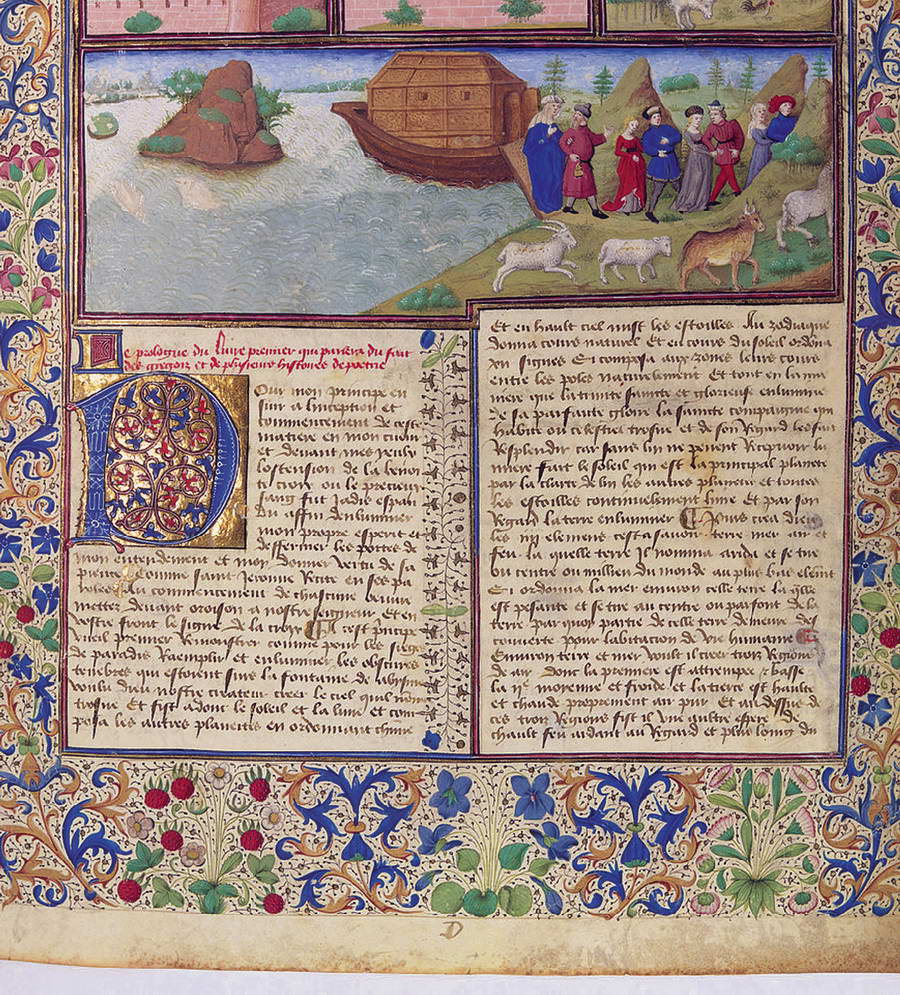 Le prologue du livre premier qui parlera du fait
des gregois et de plusieurs histoires de poetrie
Pour mon principe en
suir a linception et
commencement de ceste
matiere en mon cueur
et deuant mes yeulx
lostension de la benoi
te croix ou le precieux
sang fut jadis espan
du affin denluminer
mon propre esperit et
deffermer les portes de
mon entendement et moy donner vertu de sa
pience Comme saint Jerome Recite en ses pa
roles Au commencement de chascune oeuure
mettez deuant oroison a nostre seigneur Et en
vostre front le signe de la croix Et cest principe
vueil premier Remonstrer comme pour les sieges
de paradis Raemplir et enluminer les obscures
tenebres qui estoient sur la fontaine de abysme
voulu dieu nostre createur creer le ciel quil nom
trosne Et fist adonc le soleil et la lune et com
posa les autres planettes en ordonnant chune
Et en hault ciel mist les estoilles Au zodiaque
donna cours naturel Et en cours du soleil ordona
xij signes Et composa aux zones leurs cours
entre les poles naturelement Et tout en la ma
niere que la trinite saincte et glorieuse enlumine
de sa parfaite gloire la saincte compaignie qui
habite ou celestial trosne et de son Regard les fait
Resplendir car sans luy ne peuent Receuoir lu
miere fait le soleil qui est la principal planete
par la clarte de luy les autres planetes et toutes
les estoilles continuelement luire Et par son
Regard la terre enluminer Et Puis crea dieu
les iiij element cest assauoir terre mer air et
feu la quelle terre Il nomma arida et se tire
ou centre ou millieu du monde au plus bas element
Et ordonna la mer enuiron celle terre la qlle
est pesante et se tire au centre ou parfont de la
terre par quoy partie de celle terre demeure des
couuerte pour labitacion de vie humaine
Enuiron terre et mer voult il creer trois Regions
de air dont la premiere est attrempee et basse
la ije moyenne et froide et la tierce est haulte
et chaude proprement air pur Et au dessus de
ces trois Regions fist il vne aultre espere de
chault feu ardant au Regard et plus loing du
D